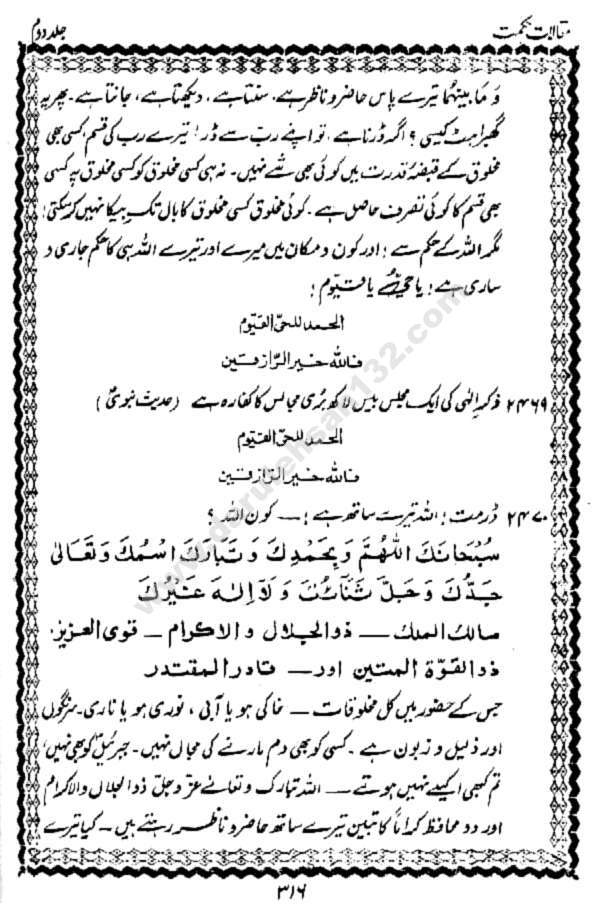 مقالات حکمت
جلد دوم
وَ مَا بینہُما تیرے پاس حاضر و ناظر ہے، سنتا ہے، دیکھتا ہے، جانتا ہے۔ پھر یہ
گھبراہٹ کیسی؟ اگر ڈرنا ہے، تو اپنے رب سے ڈر! تیرے رب کی قسم، کسی بھی
مخلوق کے قبضۂ قدرت میں کوئی بھی شے نہیں۔ نہ ہی کسی مخلوق کو کسی مخلوق پہ کسی
بھی قسم کا کوئی تصرف حاصل ہے۔ کوئی مخلوق کسی مخلوق کا بال تک بیکا نہیں کر سکتی!
مگر اللہ کے حکم سے! اور کون و مکان میں میرے اور تیرے اللہ ہی کا حکم جاری و
ساری ہے! یا حیُّ یا قیّوم!
الحمد للحیّ القیّوم
فاللہ خیر الرّازقین
۲۴۶۹ ذکرِ الٰہی کی ایک مجلس بیس لاکھ بُری مجالس کا کفارہ ہے (حدیث نبویؐ)
الحمد للحیّ القیّوم
فاللہ خیر الرّازقین
۲۴۷۰ ڈر مت! اللہ تیرے ساتھ ہے! — کون اللہ؟
سُبْحَانَكَ اللّٰهُمَّ وَ بِحَمْدِكَ وَ تَبَارَكَ اسْمُكَ وَ تَعَالٰى
جَدُّكَ وَ جَلَّ ثَنَاءُكَ وَ لَا إِلٰهَ غَيْرُكَ
مالک الملک — ذوالجلال والاکرام — قوی العزیز،
ذوالقوّۃ المتین اور — قادر المقتدر
جس کے حضور میں کل مخلوقات — خاکی ہو یا آبی، نوری ہو یا ناری۔ سرنگوں
اور ذلیل و زبون ہے۔ کسی کو بھی دم مارنے کی مجال نہیں۔ جبرئیلؑ کو بھی نہیں،
تم کبھی اکیلے نہیں ہوتے — اللہ تبارک و تعالےٰ عزّ و جلّ ذوالجلال والاکرام
اور دو محافظ کراماً کاتبین تیرے ساتھ حاضر و ناظر رہتے ہیں۔ کیا تیرے
۳۱۶
www.darulehsan132.com